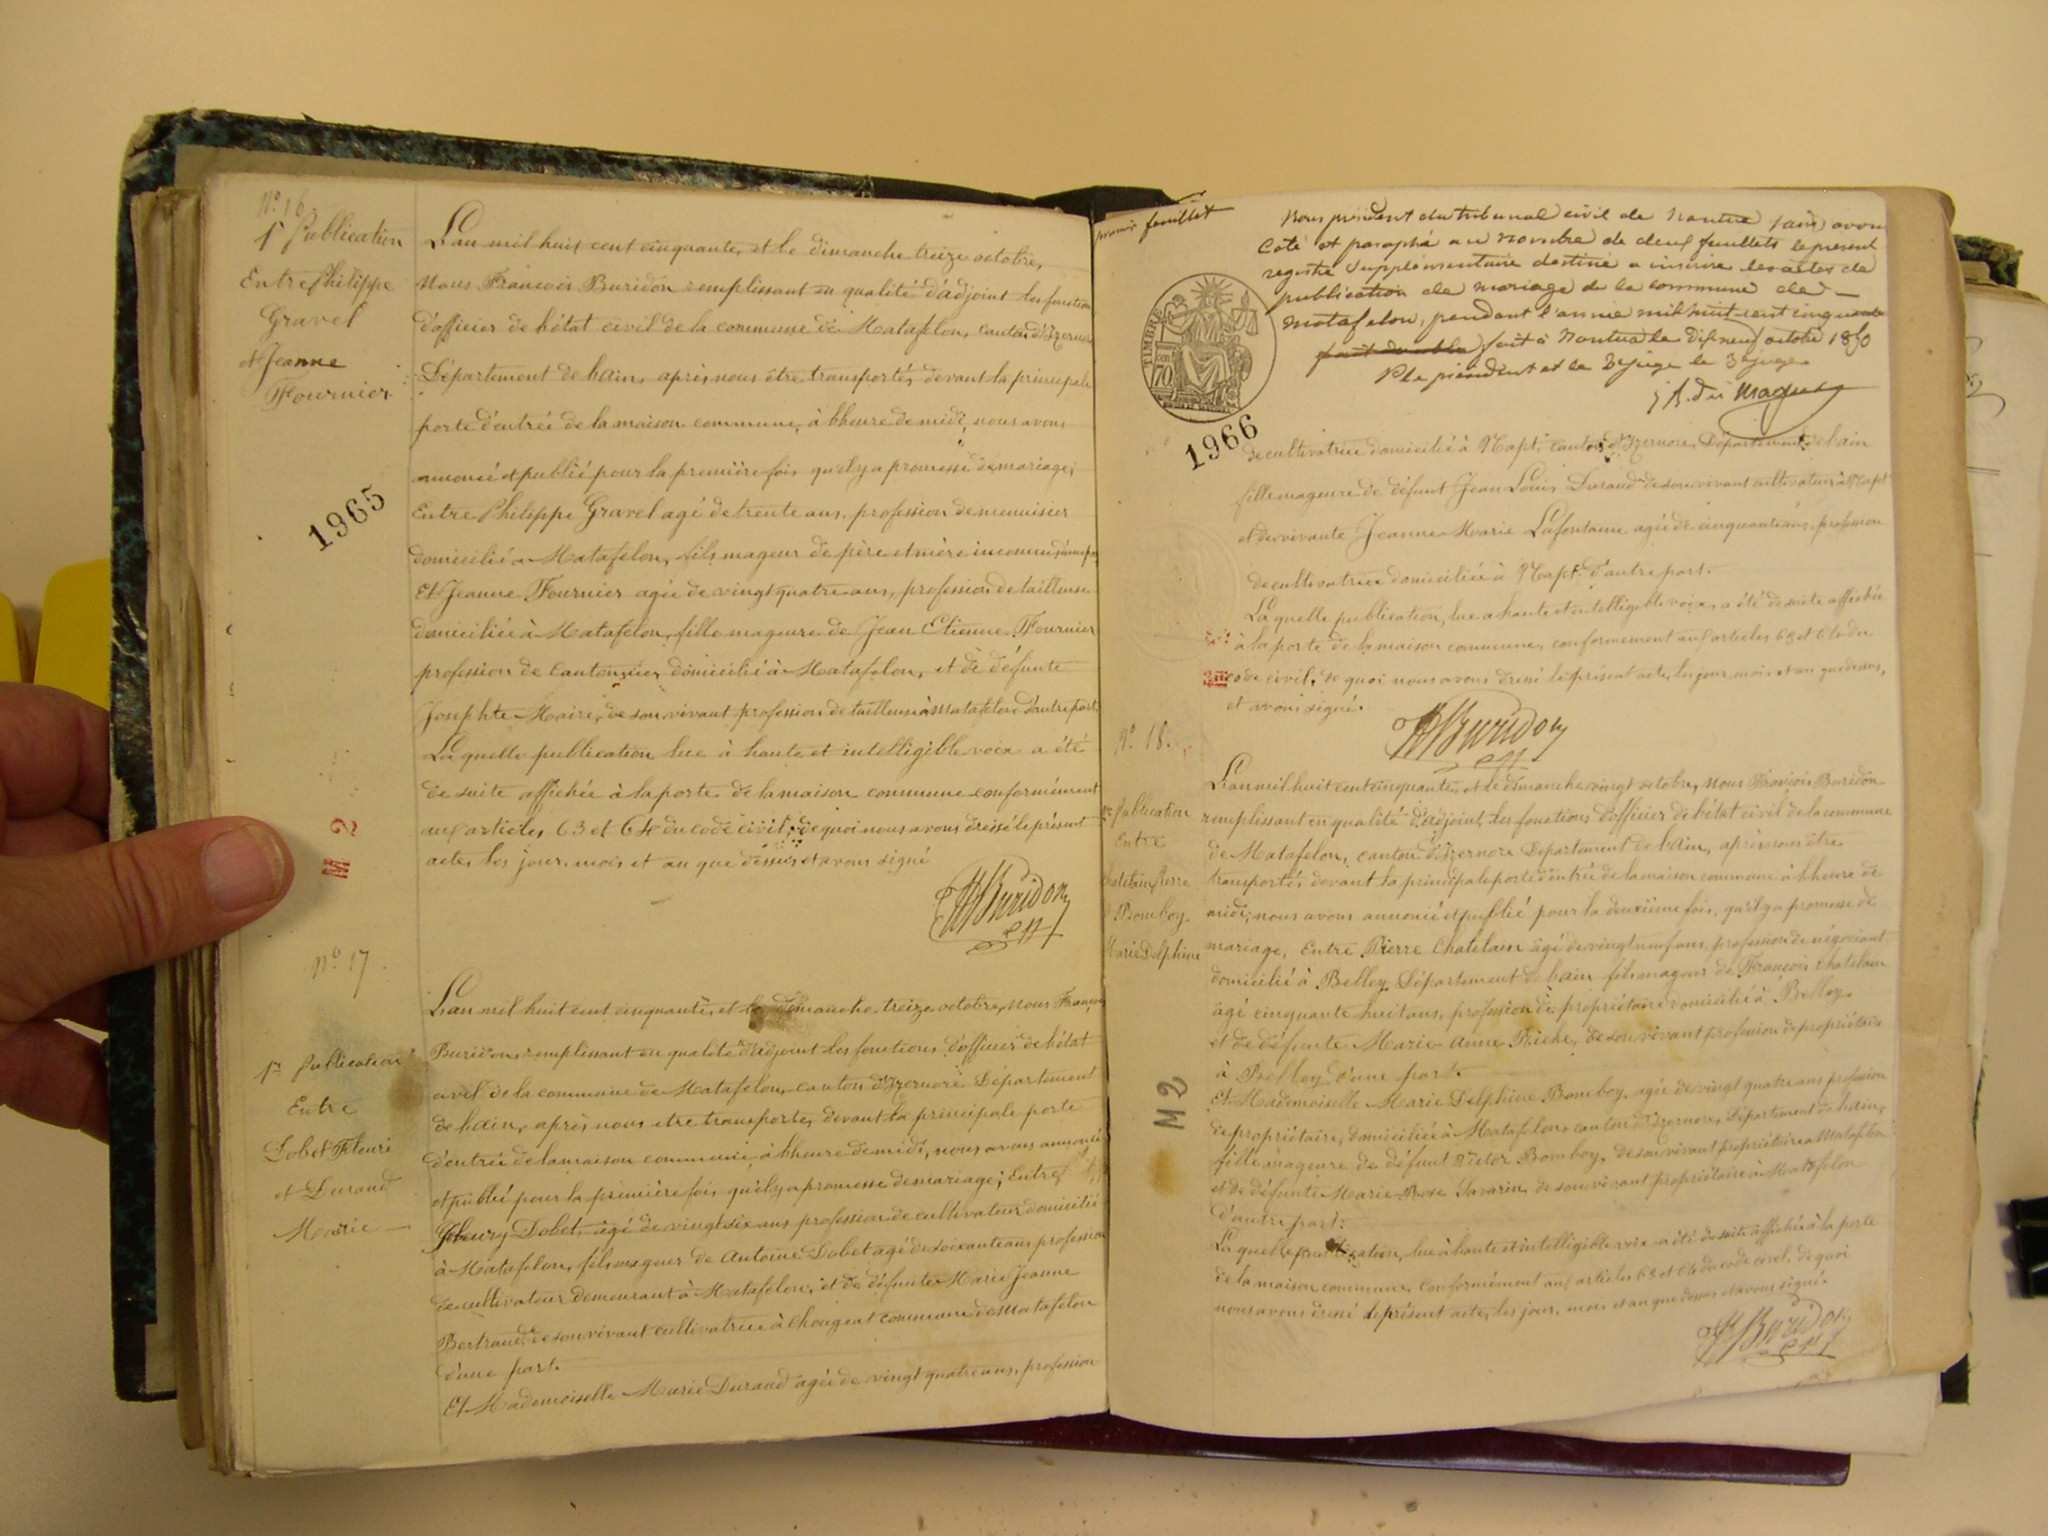 N° 16.
1e Publication
Entre Philippe
Gravel
et Jeanne
Fournier
1965
M 2
L'an mil huit cent cinquante, et le dimanche treize octobre,
Nous François Buridon remplissant en qualité d'adjoint les fonctions
d'officier de l'état civil de la commune de Matafelon, canton d'Izernore
Département de l'ain, après nous être transportés devant la principale
porte d'entrée de la maison commune, à l'heure de midi, nous avons
annoncé et publié pour la première fois qu'il y a promesse de mariage,
Entre Philippe Gravel agé de trente ans, profession de menuisier
domicilié à Matafelon, fils mageur de père et mère inconnus d'une part
Et Jeanne Fournier agée de vingt quatre ans, profession de tailleuse
domiciliée à Matafelon, fille mageure de Jean Etienne Fournier
profession de cantonnier, domicilié à Matafelon, et de défunte
Josephte Maire, de son vivant profession de tailleuse à Matafelon d'autre part.
Laquelle publication lue à haute et intelligible voix a été
de suite affichée à la porte de la maison commune conformément
aux articles 63 et 64 du code civil, de quoi nous avons dressé le présent
acte, les jour, mois et an que dessus et avons signé
Buridon
N° 17.
1re Publication
Entre
Dobet Fleuri
et Durand
Marie
L'an mil huit cent cinquante, et le dimanche treize octobre, nous François
Buridon remplissant en qualité d'adjoint les fonctions d'officier de l'état
civil de la commune de Matafelon, canton d'Izernore Département
de l'ain, après nous etre transportés devant la principale porte
d'entrée de la maison commune, à l'heure de midi, nous avons annoncé
et publié pour la première fois qu'il y a promesse de mariage; Entre
Fleury Dobet, agé de vingt six ans profession de cultivateur domicilié
à Matafelon, fils mageur de Antoine Dobet agé de soixante ans profession
de cultivateur demeurant à Matafelon, et de défunte Marie Jeanne
Bertrand, de son vivant cultivatrice à Chougeat commune de Matafelon
d'une part.
Et Mademoiselle Marie Durand agée de vingt quatre ans, profession
premier feuillet
Nous président du tribunal civil de Nantua (ain) avons
coté et paraphé au nombre de deux feuillets le present
registre supplémentaire destiné a inscrire les actes de
publication de mariage de la commune de
matafelon, pendant l'année mil huit cent cinquante
fait à Nantua le dix neuf octobre 1850
P le président et le 2e juge le 3e juge
TIMBRE
70
1966
de cultivatrice domicilié à Napt, canton d'Izernore, Département de l'ain
fille mageure de défunt Jean Louis Durand de son vivant cultivateur à Napt
et de vivante Jeanne Marie Lafontaine agée de cinquante ans, profession
de cultivatrice domiciliée à Napt d'autre part.
Laquelle publication, lue a haute et intelligible voix, a été de suite affichée
à la porte de la maison commune, conformement aux articles 63 et 64 du
code civil, de quoi nous avons dressé le présent acte, les jour, mois et an que dessus,
et avons signé.
Buridon
N° 18.
Publication
Entre
Chatelain Pierre
Bomboy
Marie Delphine
M 2
L'an mil huit cent cinquante, et le dimanche vingt octobre, Nous François Buridon
remplissant en qualité d'adjoint, les fonctions d'officier de l'état civil de la commune
de Matafelon, canton d'Izernore Département de l'ain, après nous être
transportés devant la principale porte d'entrée de la maison commune à l'heure de
midi, nous avons annoncé et publié pour la deuxième fois, qu'il y a promesse de
mariage, Entre Pierre Chatelain agé de vingt neuf ans, profession de négociant
domicilié à Belley, Département de l'ain fils mageur de François Chatelain
agé cinquante huit ans, profession de propriétaire domicilié à Belley.
et de défunte Marie Anne Riche, de son vivant profession de propriétaire
à Belley d'une part.
Et Mademoiselle Marie Delphine Bomboy, agée de vingt quatre ans profession
de propriétaire, domiciliée à Matafelon, canton d'Izernore, Département de l'ain,
fille mageure de défunt Victor Bomboy, de son vivant propriétaire à Matafelon
et de défunte Marie Rose Savarin, de son vivant propriétaire à Matafelon
d'autre part.
Laquelle publication, lue à haute et intelligible voix a été de suite affichée à la porte
de la maison commune, conformément aux articles 63 et 64 du code civil, de quoi
nous avons dressé le présent acte, les jour, mois et an que dessus et avons signé.
Buridon